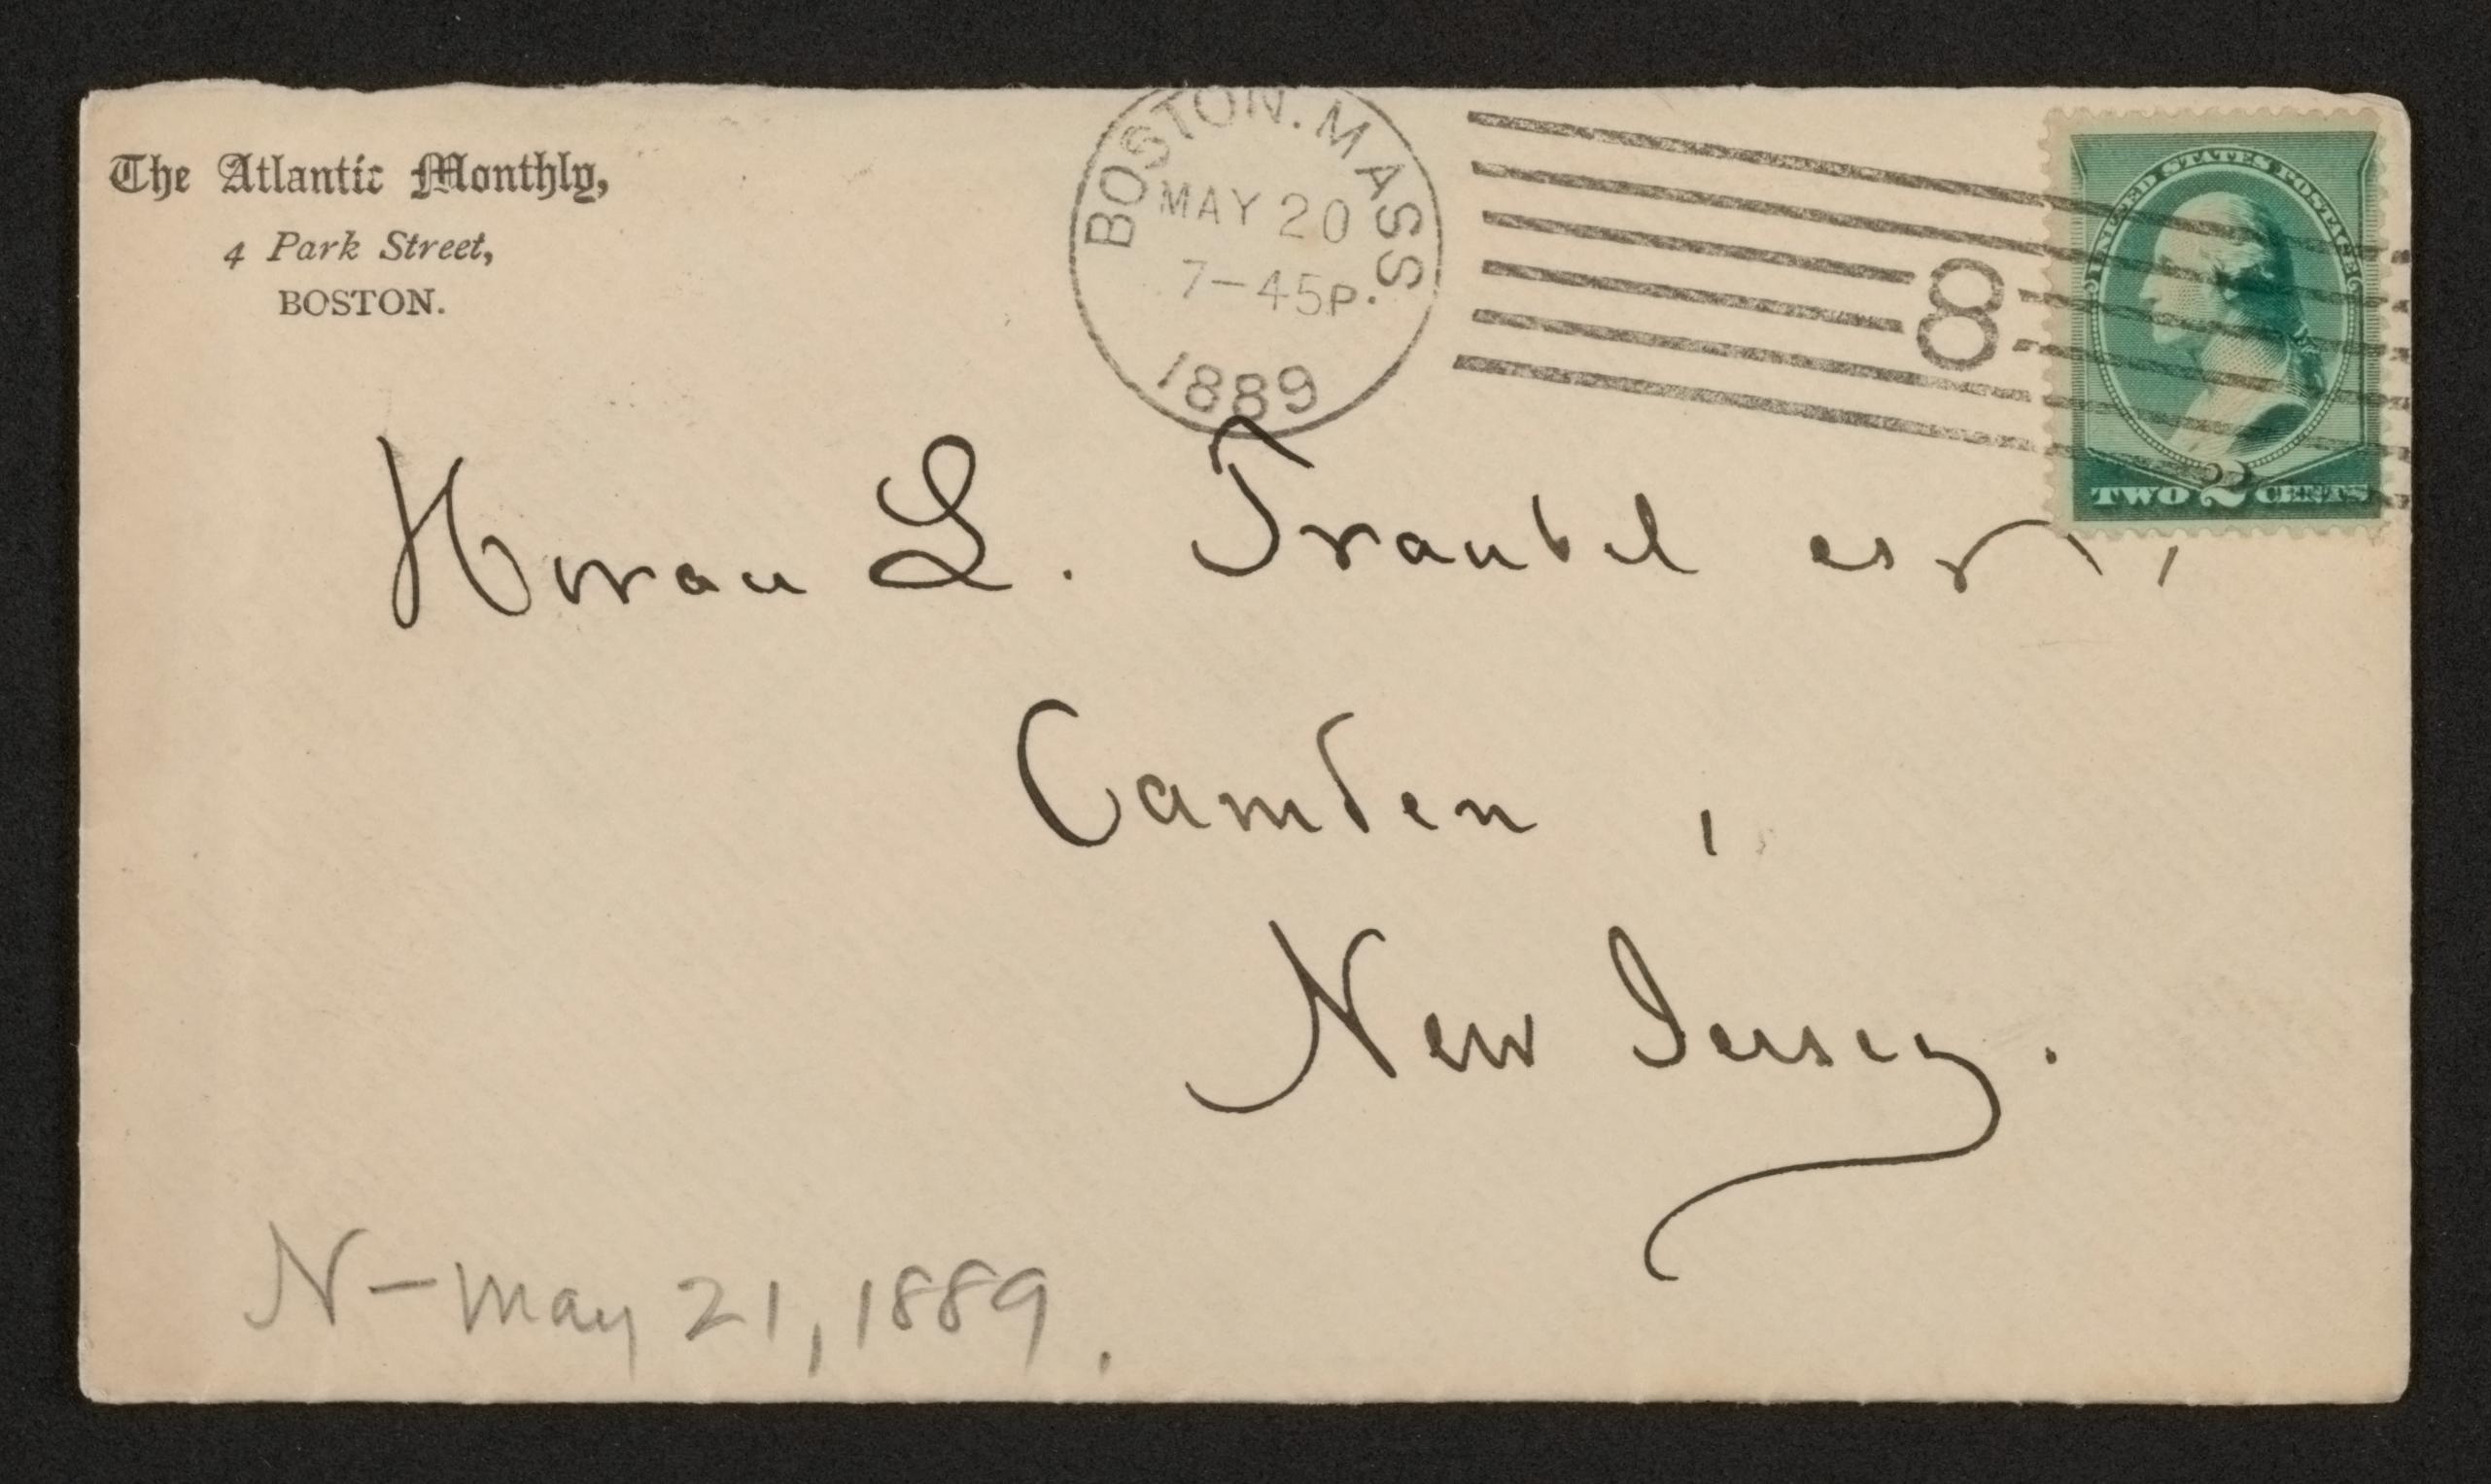 The Atlantic Monthly,
4 Park Street,
BOSTON.
BOSTON. MASS.
MAY 20
7-45P.
1889
8
UNITED STATES POSTAGE
TWO 2 CENTS
Horace L. Traubel esq,
Camden,
New Jersey.
N - May 21, 1889.